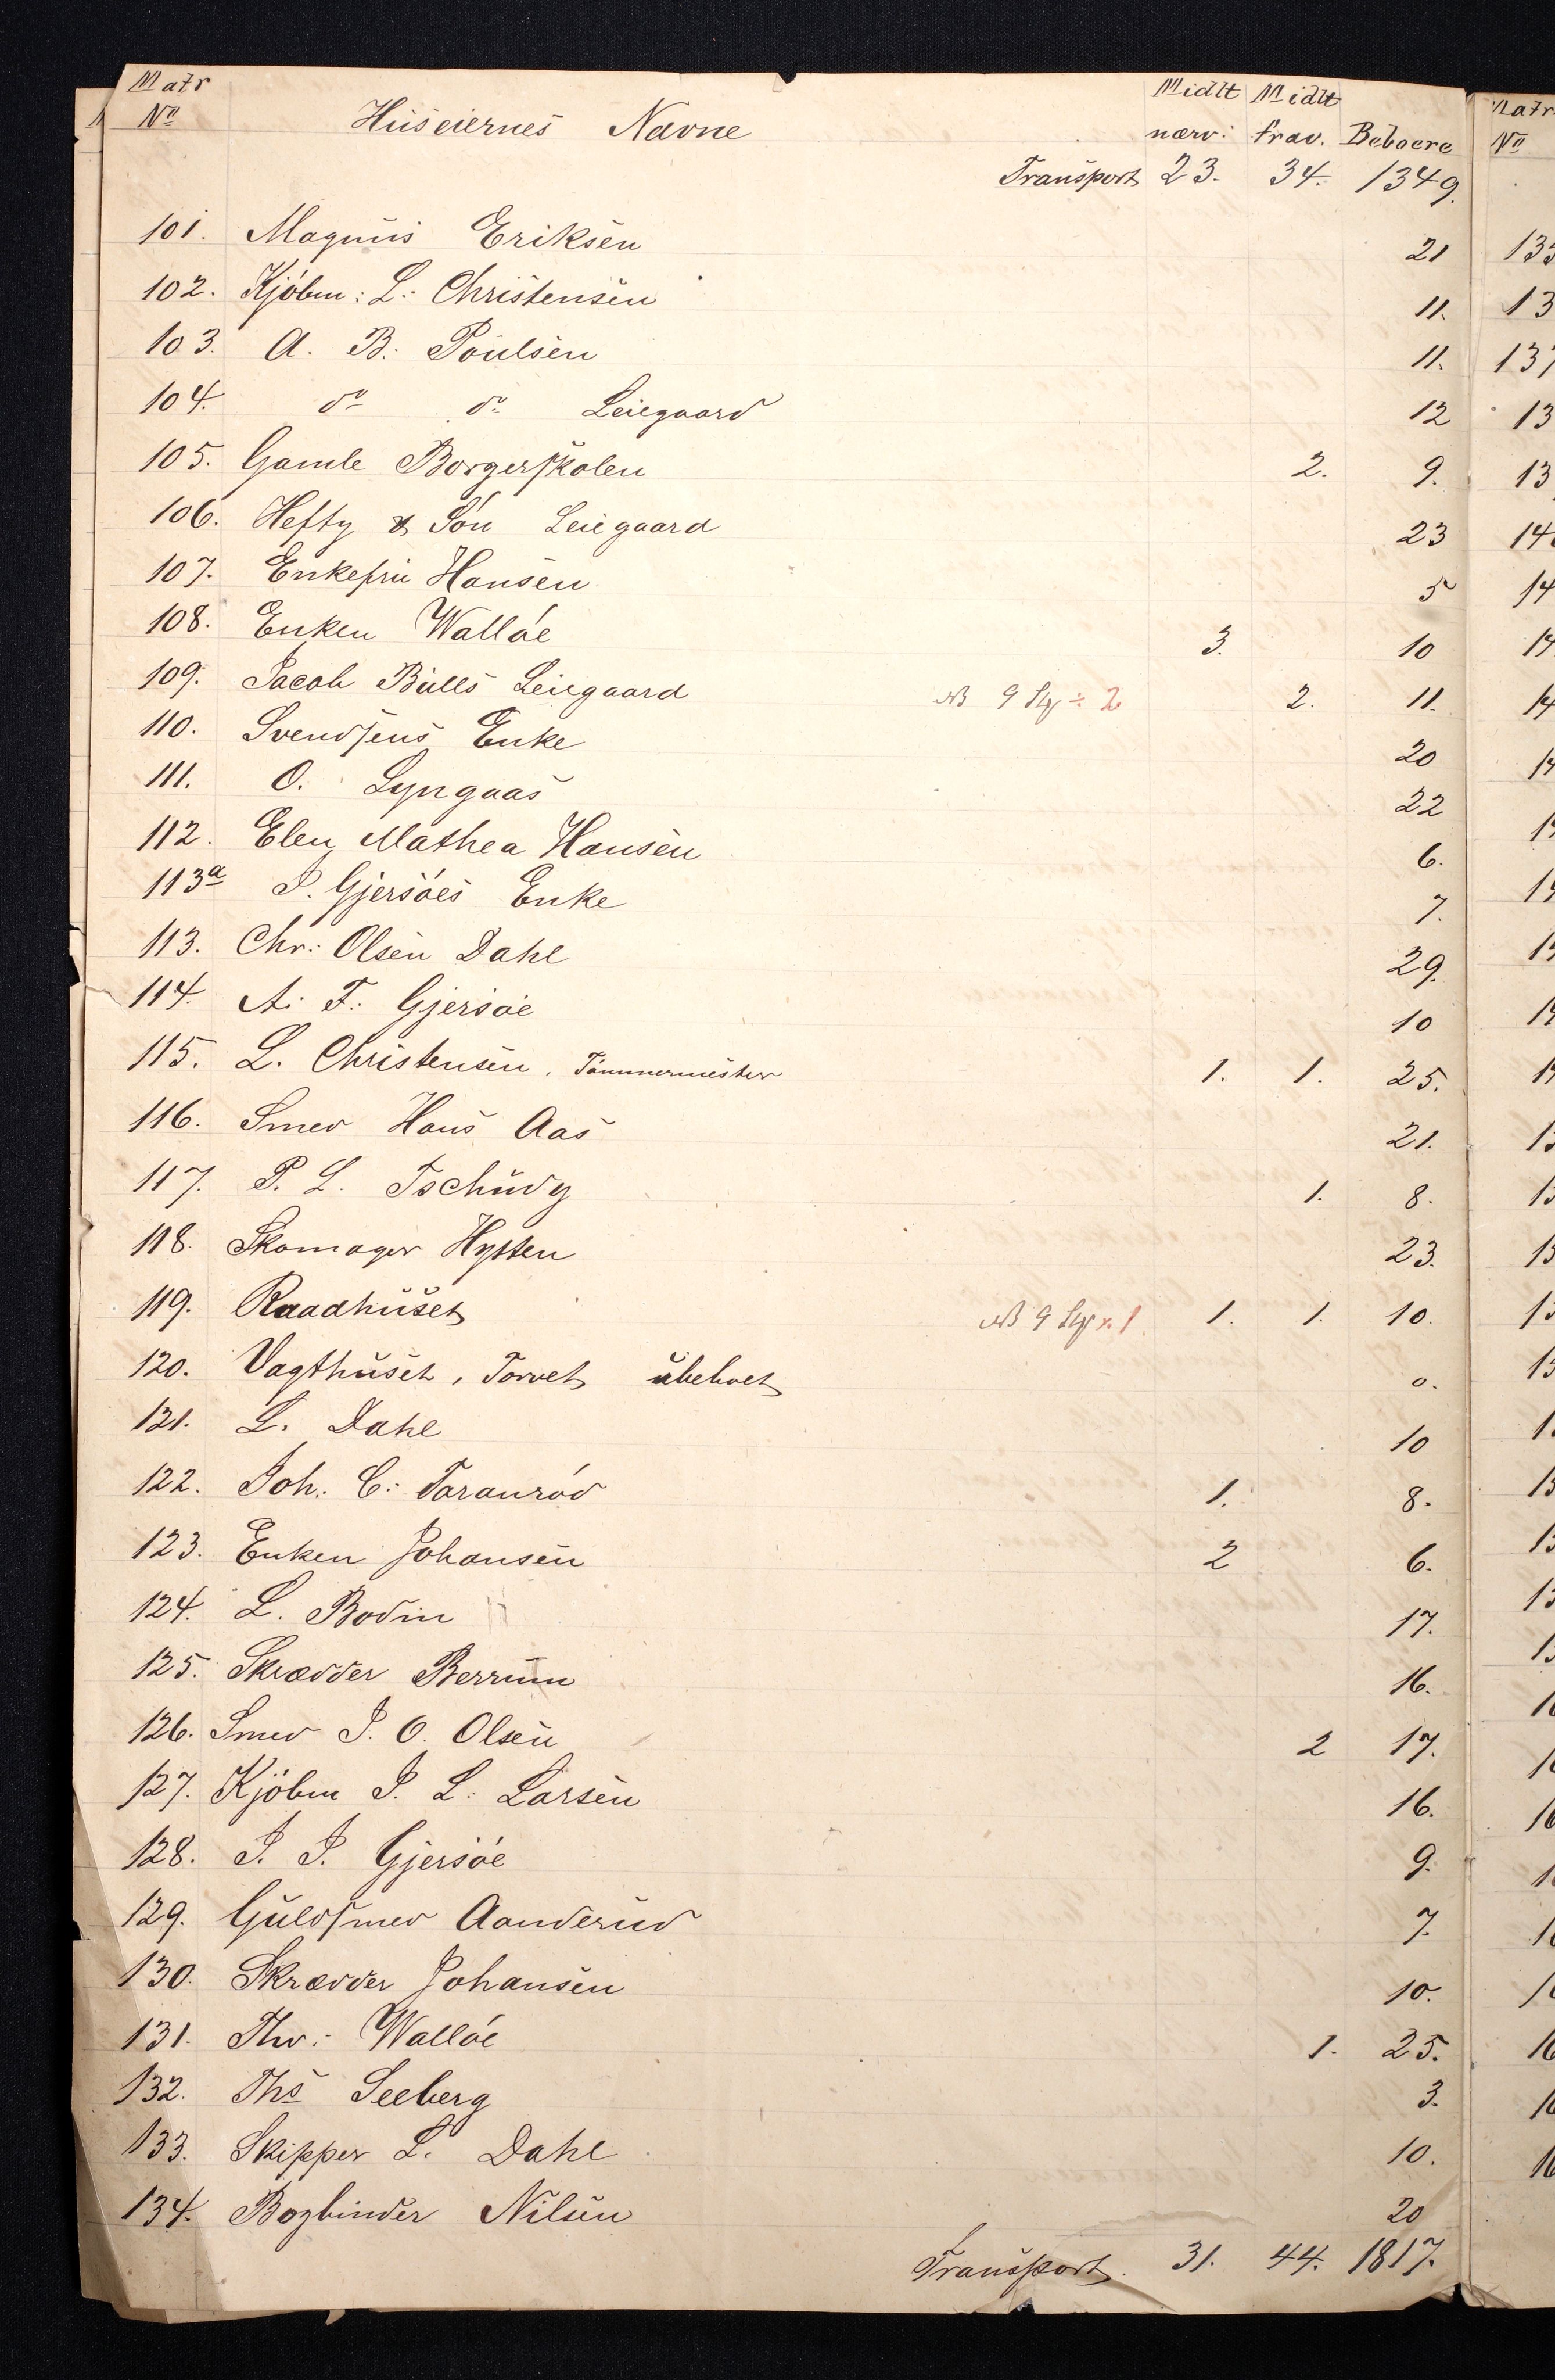 Matr Midlt Midlt
No Huseiernes Navne nærv: frav. Beboere
Transport 23. 34. 1349.
101. Magnus Eriksen 21
102. Kjöbm: L: Christensen 11.
103. A. B. Poulsen 11.
104. do do Leiegaard 12
105. Gamle Borgerskolen 2. 9.
106. Hefty & Sön Leiegaard 23
107. Enkefru Hansen 5
108. Enken Wallöe 3. 10
109. Jacob Bulls Leiegaard NB 9 ÷ 2 2. 11.
110. Svendsens Enke 20
111. O. Lyngaas 22
112. Elen Mathea Hansen 6.
113a J. Gjersöes Enke 7.
113. Chr: Olsen Dahl 29.
114. A. F. Gjersöe 10
115. L. Christensen, Tömmermester 1. 1. 25.
116. Smed Hans Aas 21.
117. P. L. Tschudy 1. 8.
118. Skomager Hysten 23.
119. Raadhuset NB 9 1 1. 1. 10.
120. Vagthuset, Torvet ubeboet 0.
121. L. Dahl 10
122. Joh. C: Taranröd 1. 8.
123. Enken Johansen 2 6.
124. L. Bodin 17.
125. Skrædder Berrum 16.
126. Smed J. O. Olsen 2 17.
127. Kjöbm J. L. Larsen 16.
128. J. J. Gjersöe 9.
129. Guldsmed Aanderud 7.
130. Skrædder Johansen 10.
131. Thv: Wallöe 1. 25.
132. Ths Seeberg 3.
133. Skipper L. Dahl 10.
134. Bogbinder Nilsen 20
Transport 31. 44. 1817.